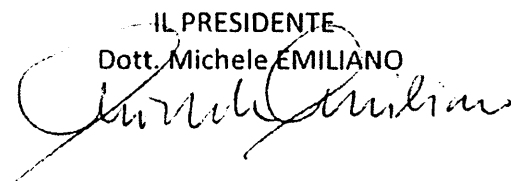 IL PRESIDENTE
Dott. Michele EMILIANO
Michele Emiliano